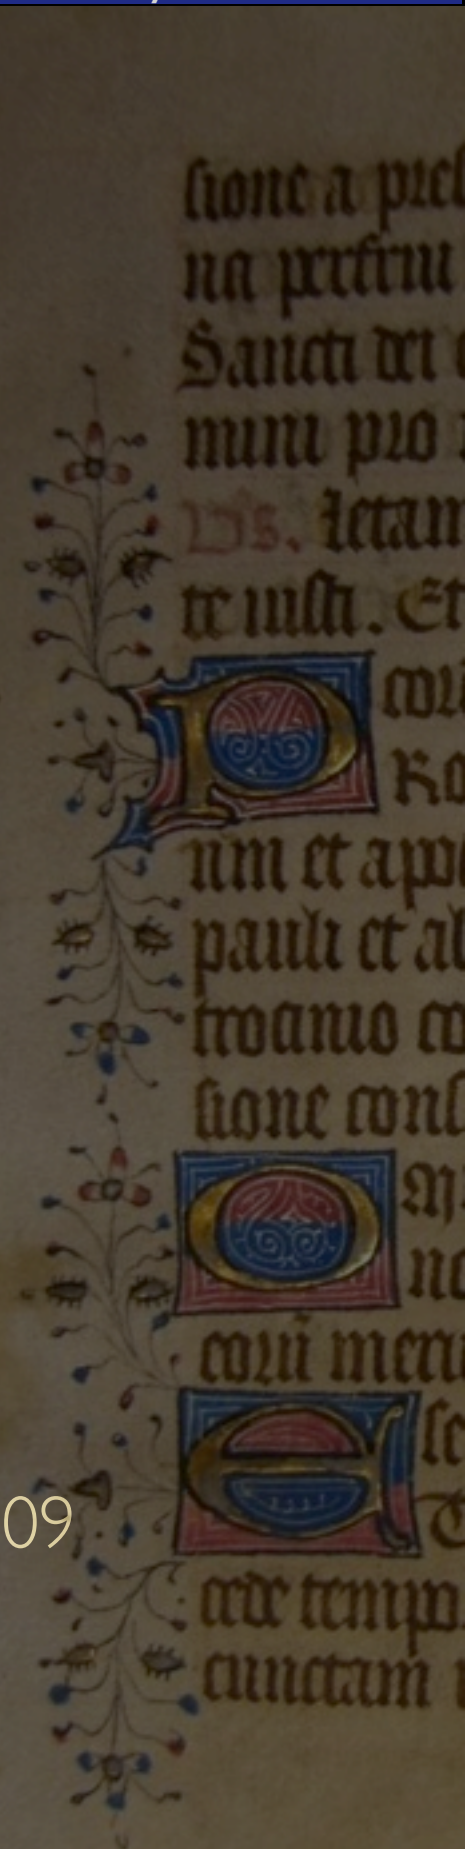 sione a pres
na perfrui
Sancti dei
mini pro
Vs. letam
te iusti. Et
P corū
Ro
um et apo
pauli et al
trocinio co
sione cons
O M
no
corū meri
E se
cede tempo
cunctam
09